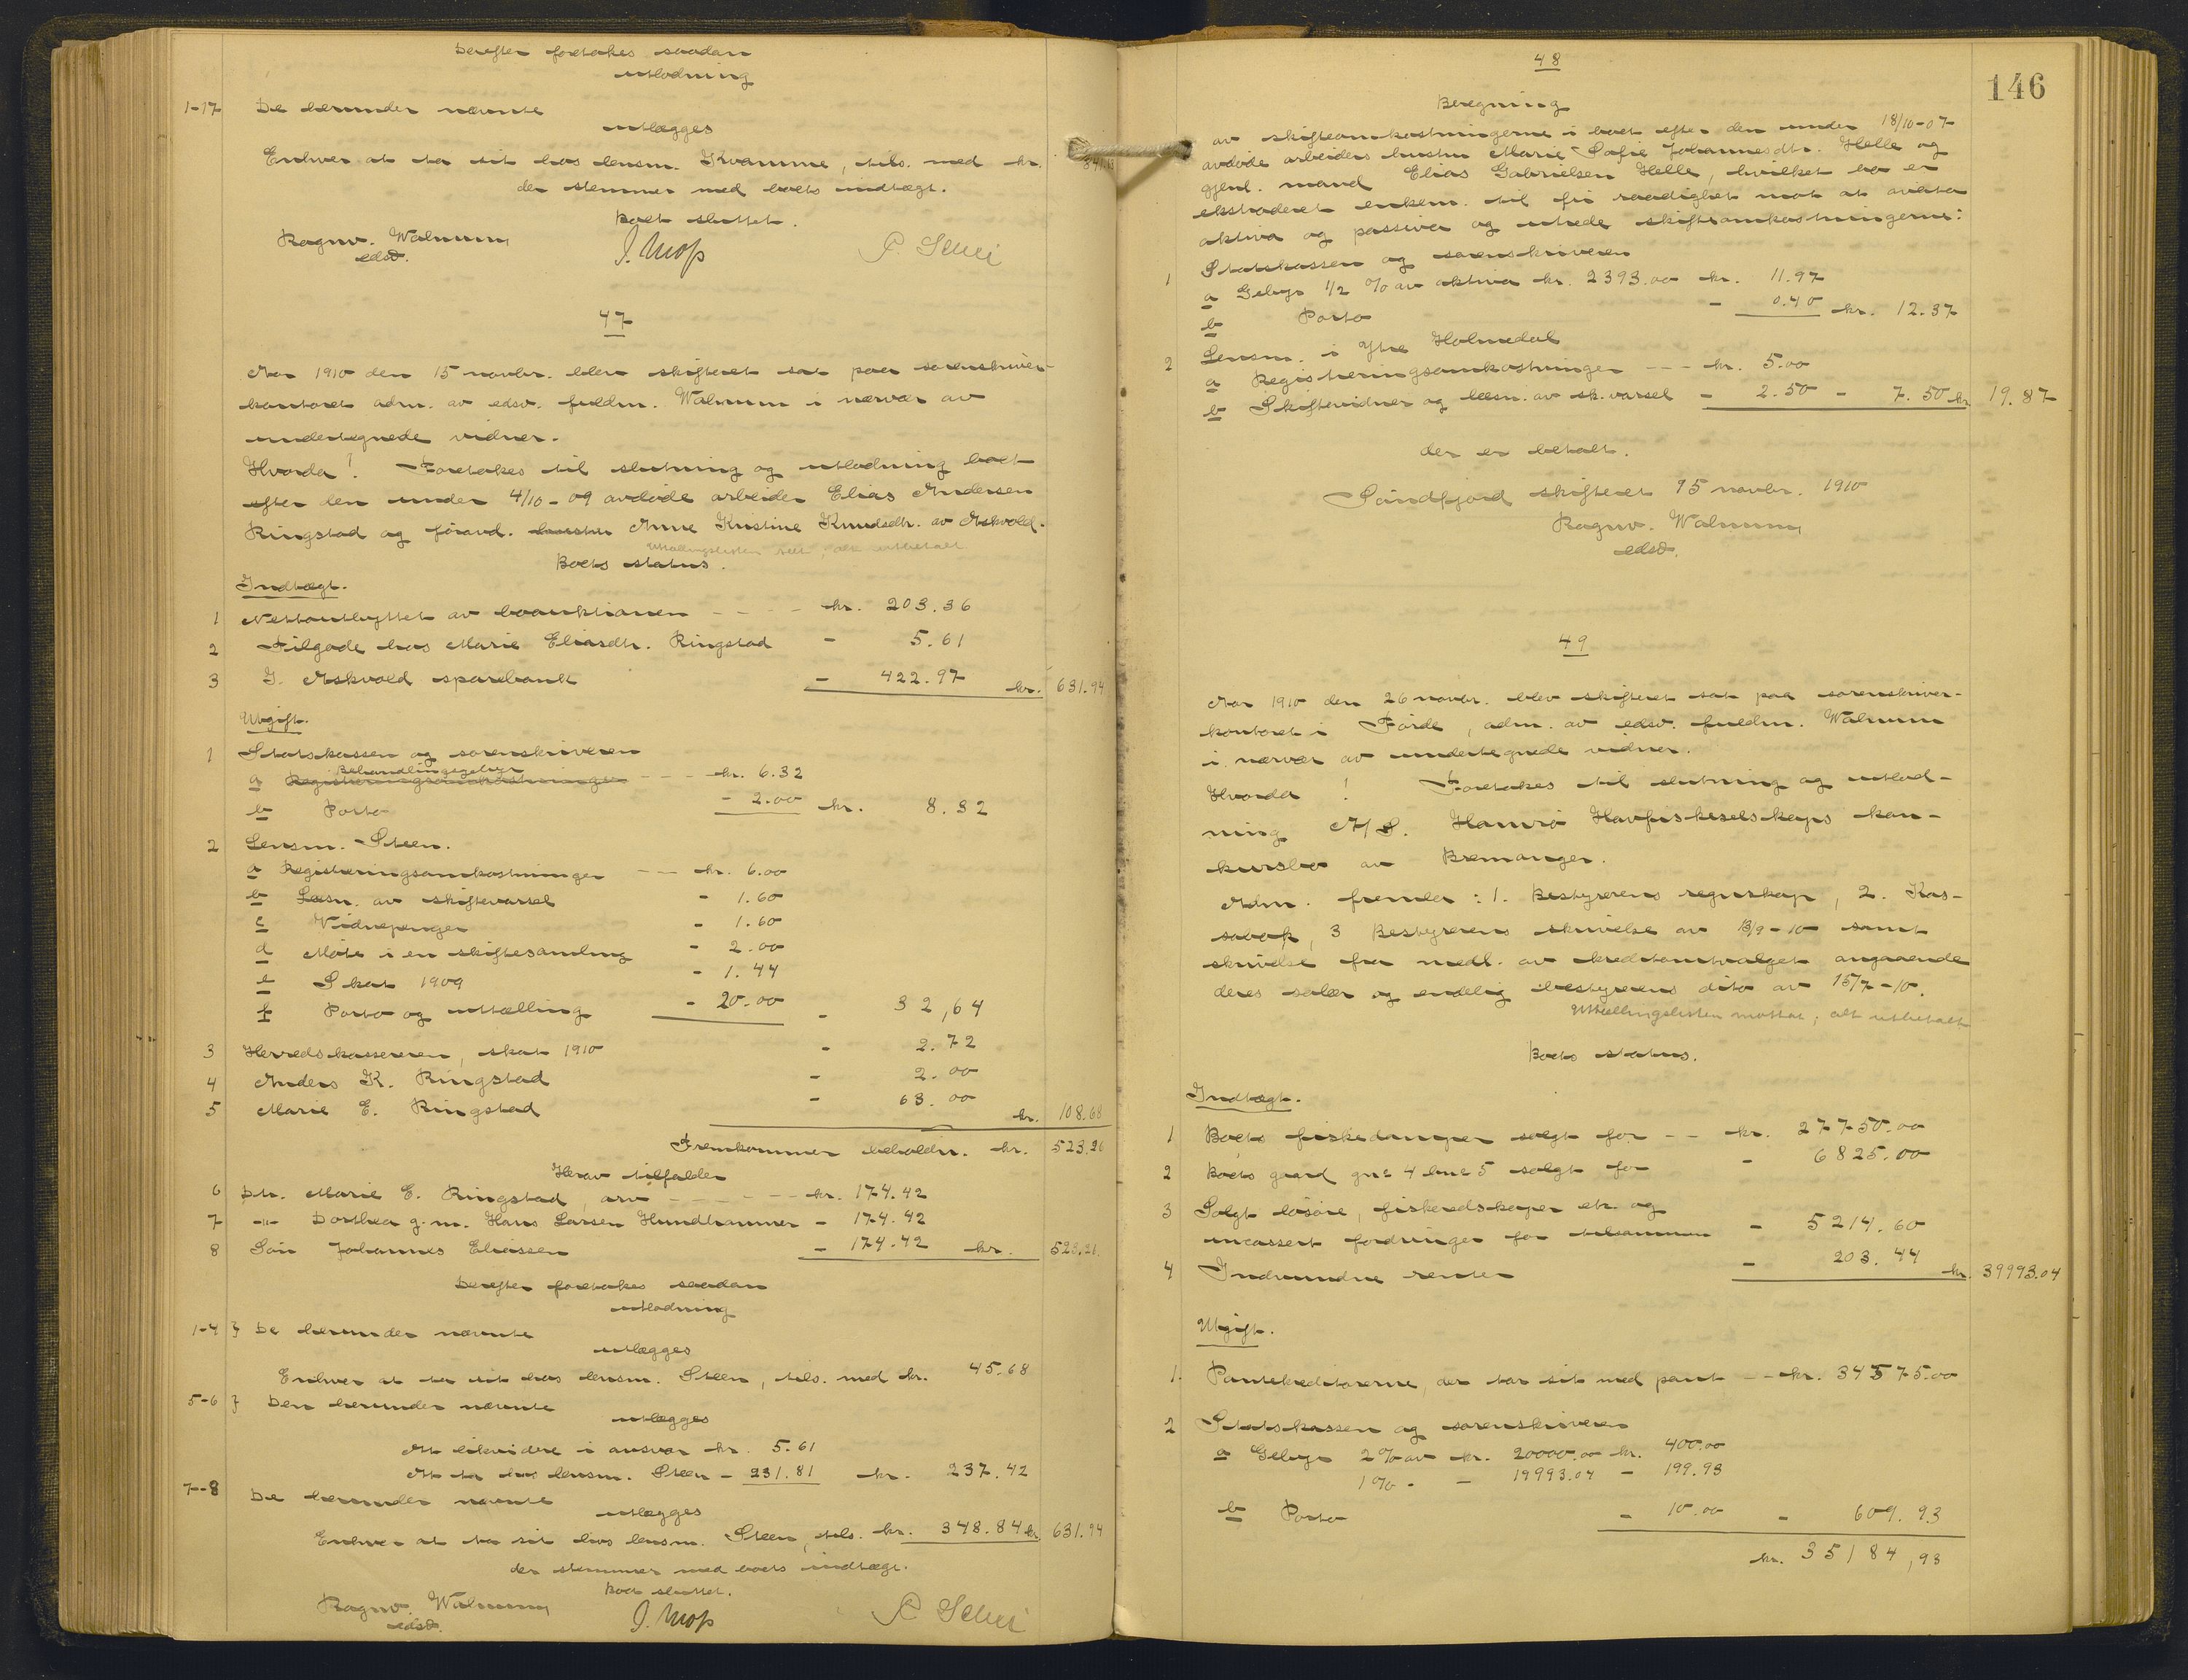 Derefter foretakes saadan
utlodning
1-17 De herunder nævnte
utlægges
Enhver at ta sit hos lensm. Kvamme, tils. med kr.
der stemmer med boets indtægt.
Boet sluttet.
Ragnv. Walnum
edsv.
47
Aar 1910 den 15 novbr. blev skifteret sat paa sorenskriver-
kontoret adm. av edsv. fuldm. Walnum i nærvær av
undertegnede vidner.
Hvorda! Foretakes til slutning og utlodning boet
efter den under 4/10-09 avdøde arbeider Elias Andersen
Ringstad og foravd. hustru Anne Kristine Knudsdtr. av Askvold.
Uttællingslisten set, alt utbetalt
Boets status.
Indtægt.
1 Nettoutbyttet av boauktionen - - - - kr. 203.36
2 Tilgode hos Marie Eliasdtr. Ringstad - 5.61
3 I Askvold sparebank - 422.97 kr. 631.94
Utgift.
1 Statskassen og sorenskriveren
Behandlingsgebyr
a Registreringsomkostninger - - - kr. 6.32
b Porto - 2.00 kr. 8.32
2 Lensm. Steen.
a Registreringsomkostninger - - kr. 6.00
b Læsn. av skiftevarsel - 1.60
c Vidnepenger - 1.60
d Møte i en skiftesamling - 2.00
e Skat 1909 - 1.44
f Porto og uttælling - 20.00 - 32,64
3 Herredskassereren, skat 1910 - 2.72
4 Anders K. Ringstad - 2.00
5 Marie E. Ringstad - 63.00 kr. 108.68
Fremkommer beholdn. kr. 523.26
Herav tilfalder
6 Dtr. Marie E. Ringstad, arv - - - - - kr. 174.42
7 -"- Dorthea g.m. Hans Larsen Hundhammer - 174.42
8 Søn Johannes Eliassen - 174.42 kr. 523.26
Derefter foretakes saadan
utlodning
1-4 } De herunder nævnte
utlægges
Enhver at ta sit hos lensm. Steen, tils. med kr. 45.68
5-6 } Den herunder nævnte
utlægges
At likvidere i ansvar kr. 5.61
At ta hos lensm. Steen - 231.81 kr. 237.42
7-8 De herunder nævnte
utlægges
Enhver at ta sit hos lensm. Steen, tils. kr. 348.84 kr. 631.94
der stemmer med boets indtægt.
Boet sluttet.
Ragnv. Walnum
edsv.
146
48
Beregning
av skifteomkostningerne i boet efter den under 18/10-07
avdøde arbeiders hustru Marie Sofie Johannesdtr. Helle og
gjenl. mand Elias Gabrielsen Helle, hvilket bo er
ekstraderet enkem. til fri raadighet mot at overta
aktiva og passiva og utrede skifteomkostningerne:
1 Statskassen og sorenskriveren
a Gebyr 1/2 % av aktiva kr. 2393.00 kr. 11.97
b Porto - 0.40 kr. 12.37
2 Lensm. i Ytre Holmedal
a Registreringsomkostninger - - - kr. 5.00
b Skiftevidner og læsn. av sk. varsel - 2.50 - 7.50 kr. 19.87
der er betalt.
Søndfjord skifteret 15 novbr. 1910
Ragnv. Walnum
edsv.
49
Aar 1910 den 26 novbr. blev skifteret sat paa sorenskriver-
kontoret i Førde, adm. av edsv. fuldm. Walnum
i nærvær av undertegnede vidner.
Hvorda! Foretakes til slutning og utlod-
ning A/S. Havfiskeselskaps kon-
kursbo av Bremanger.
Adm. fremla: 1. Bestyrerens regnskap, 2. Kas-
sabok, 3 Bestyrerens skrivelse av 13/9-10 samt
skrivelse fra medl. av kreditorutvalget angaaende
deres salær og endelig bestyrerens dito av 15/7-10.
Uttællingslisten mottat, alt utbetalt
Boets status.
Indtægt.
1 Boets fiskedamper solgt for - - kr. 27750.00
2 Boets gaard gnr 4 bnr 5 solgt for - 6825.00
3 Solgt løsøre, fiskeredskaper etc. og
incassert fordringer for tilsammen - 5214.60
4 Indvundne renter - 203.44 kr. 39993.04
Utgift.
1. Pantekreditorerne, der tar sit med pant - - kr. 34575.00
2 Statskassen og sorenskriveren
a Gebyr 2% av kr. 20000.00 kr. 400.00
1% - - 19993.04 - 199.93
b Porto - 10.00 - 609.93
kr. 35184,93